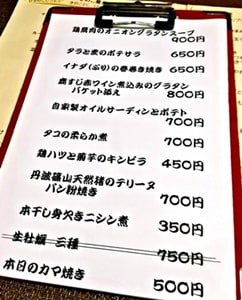 鶏胸肉のオニオングラタンスープ
900円
タラと麦のポテサラ 650円
イナダ(ぶり)の香巻き焼き 650円
鹿すじ赤ワイン煮込みのグラタン
バケット添え 800円
自家製オイルサーディンとポテト
700円
タコの柔らか煮 700円
鶏ハツと前芋のキンピラ 450円
丹波篠山天然猪のテリーヌ
パン粉焼き 700円
本干し身欠きニシン煮 350円
生牡蠣 三種 750円
本日のカマ焼き 500円